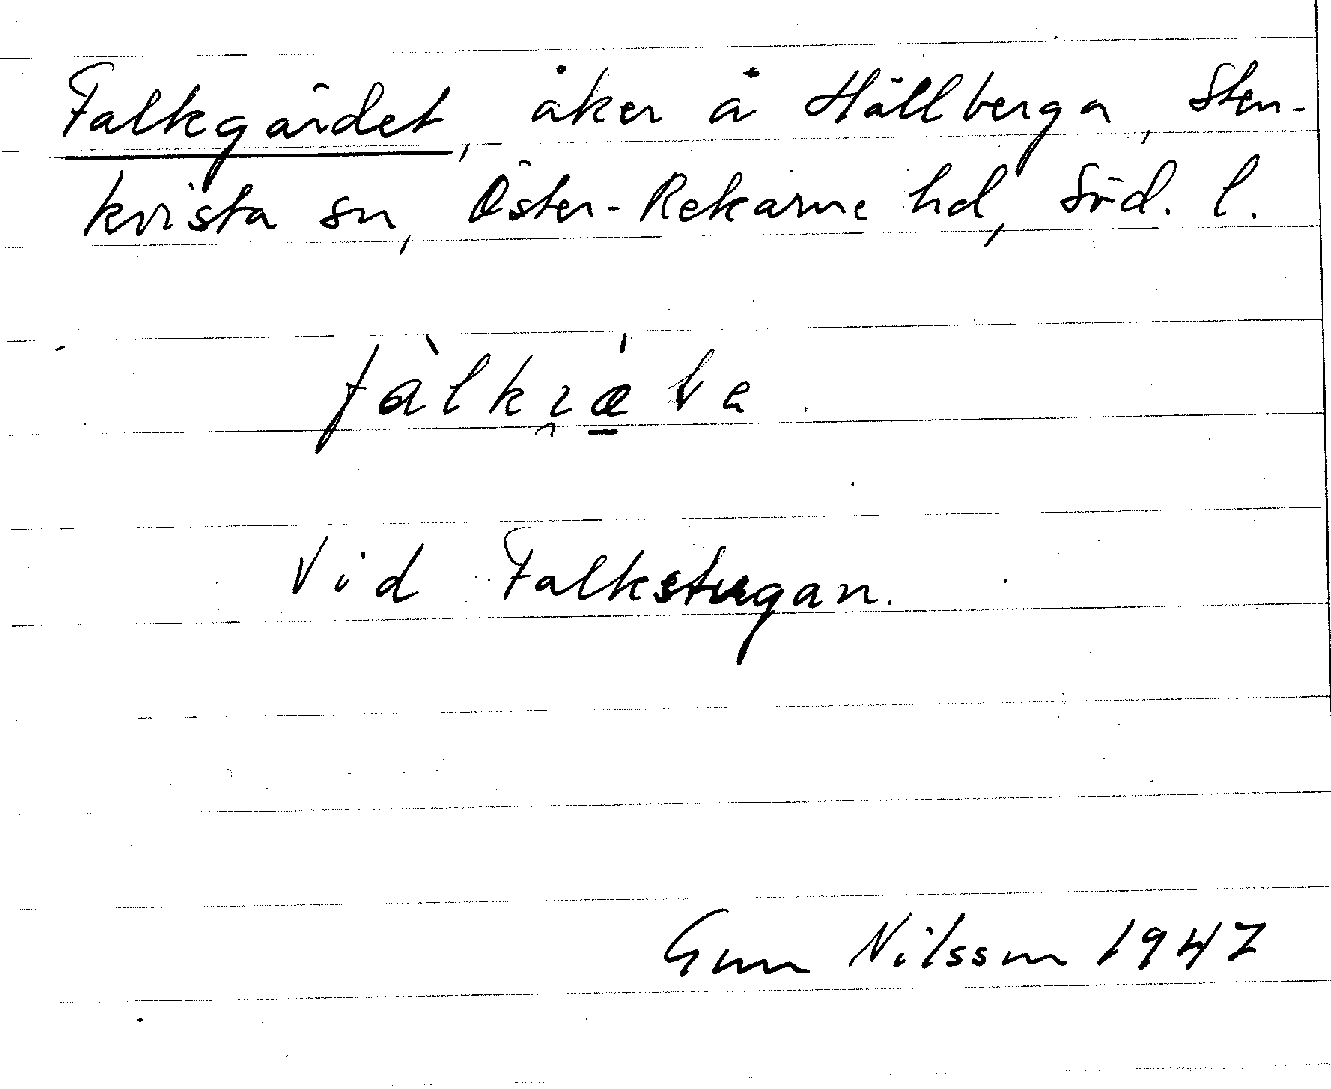 Falkgärdet, åker å Hällberga, Sten-
kvista sn, Öster-Rekarne hd, Söd. l.
Vid Falkstugan.
Gun Nilsson 1947